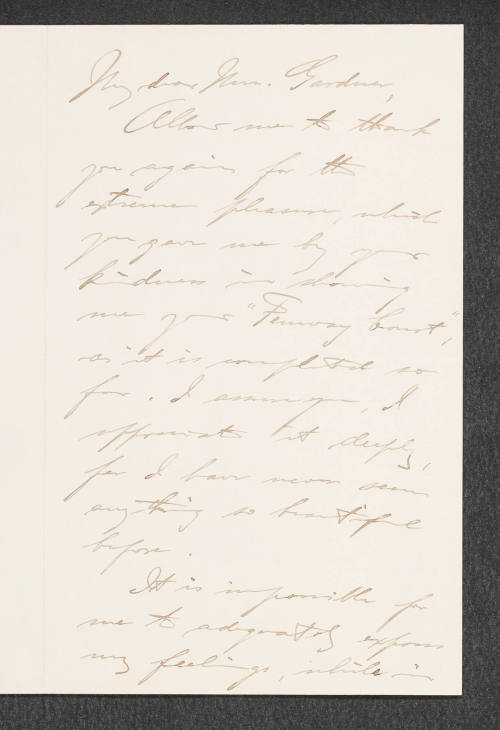 My dear Mrs. Gardner,
Allow me to thank
you again for the
extreme pleasure, which
you gave me by your
kindness in showing
me your "Fenway Court",
as it is completed so
far. I assure you, I
appreciate it deeply,
for I have never seen
anything so beautiful
before.
It is impossible for
me to adequately express
my feelings, while in